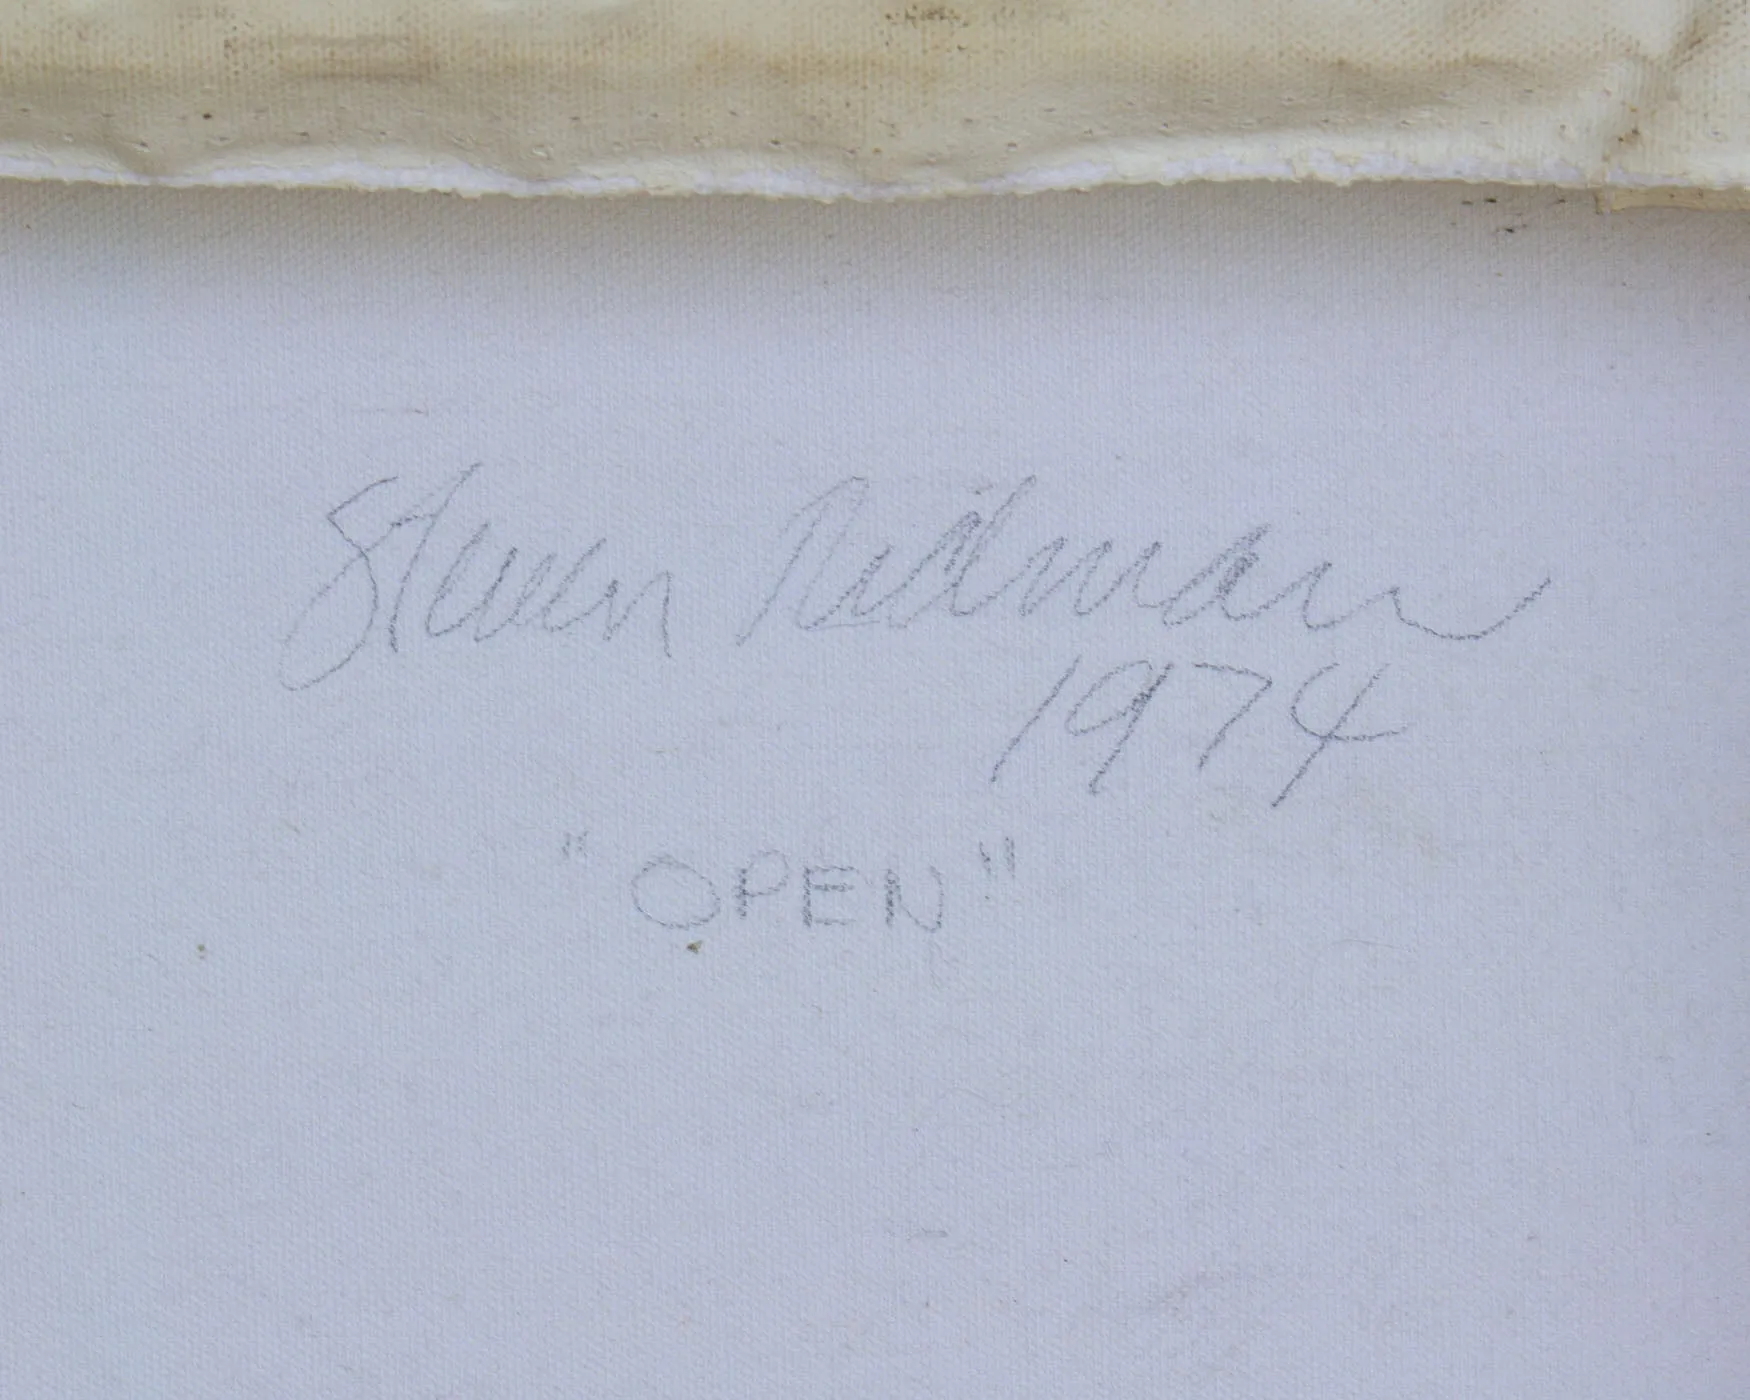 Steven Redman
1974
"OPEN"